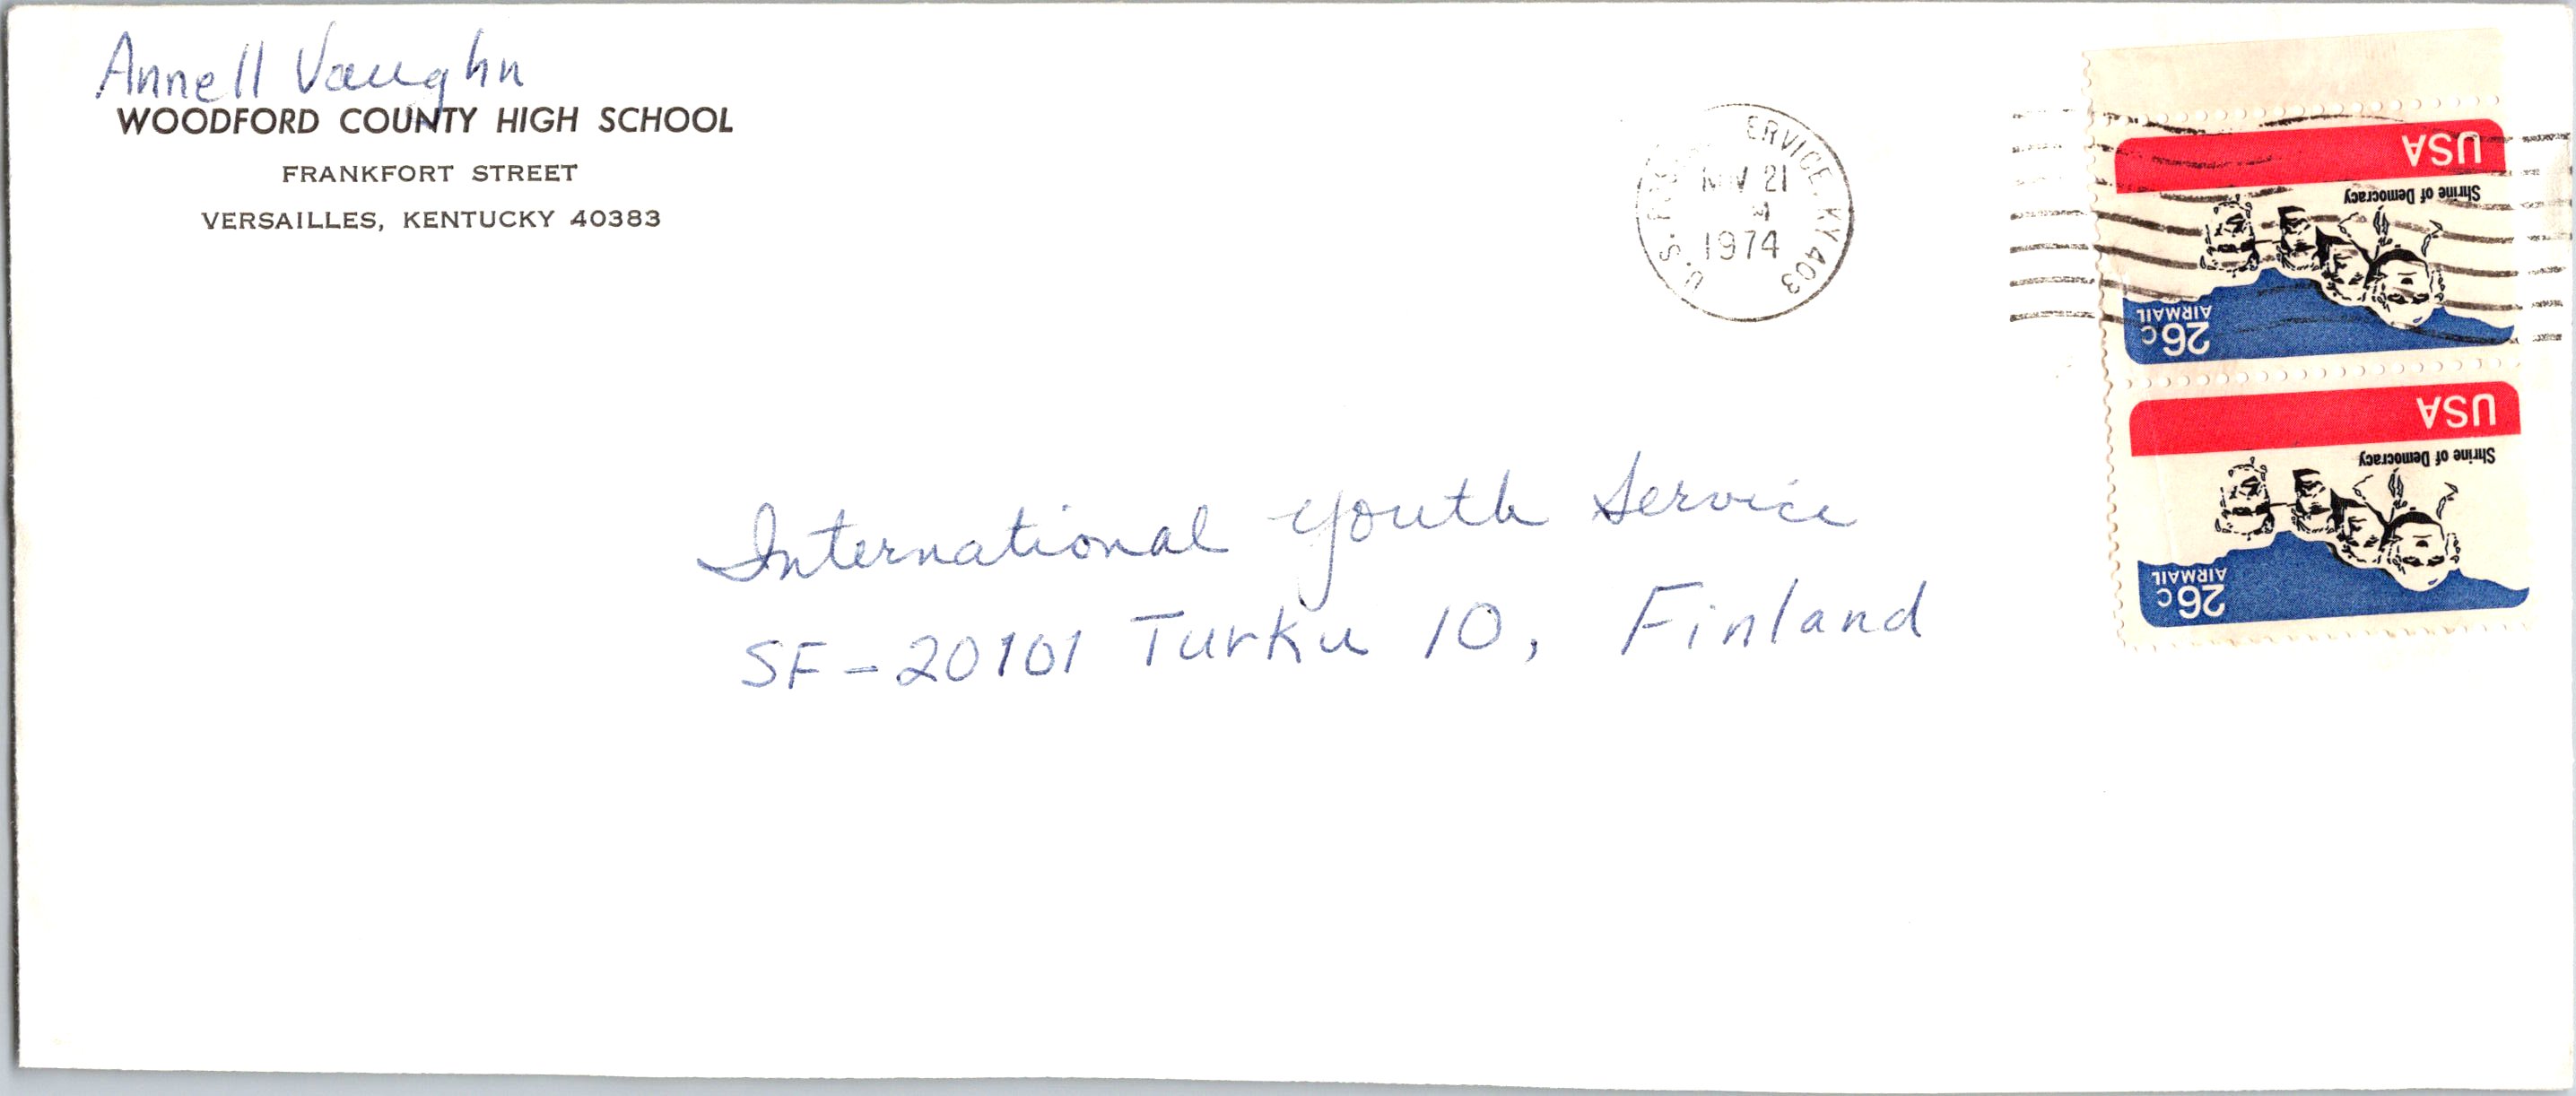 Annell Vaughn
WOODFORD COUNTY HIGH SCHOOL
FRANKFORT STREET
VERSAILLES, KENTUCKY 40383
ERVICE, KY 403
21
1974
U.S.
USA
Shrine of Democracy
AIRMAIL
26c
USA
Shrine of Democracy
AIRMAIL
26c
International Youth Service
SF-20101 Turku 10, Finland